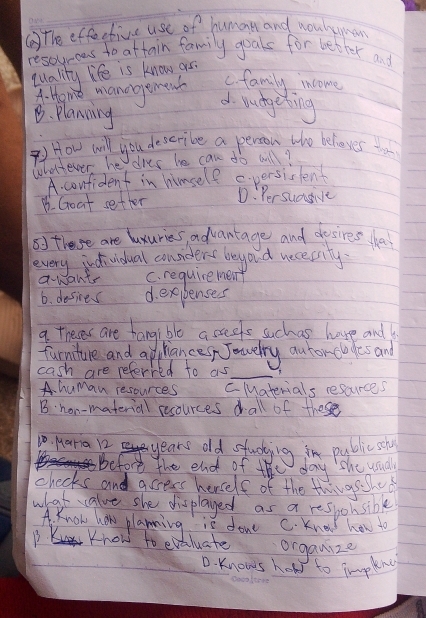 6) The effective use of human and nonhuman
resources to attain family goals for better and
quality life is known as:
A. Home management C. family income
B. Planning d. budgeting
7.) How will you describe a person who believes that
whatever he does he can do will?
A. confident in himself c. persistent
B. Goat setter D. Persuasive
8.) These are luxuries, advantage and desires that
every individual considers beyond necessity-
a. wants c. requirement
b. desires d. expenses
9. These are tangible assests such as house and
furniture and appliances, Jewelry automobiles and
cash are referred to as ____?
A. human resources C. Materials resources
B. non-material resources d. all of these
10. Maria 12 years old studying in public
before the end of the day she usually
checks and assess herself of the things she
what value she displayed as a responsible
A. Know how planning is done C. Know how to
B. Know to evaluate organize
D. Knows how to implement